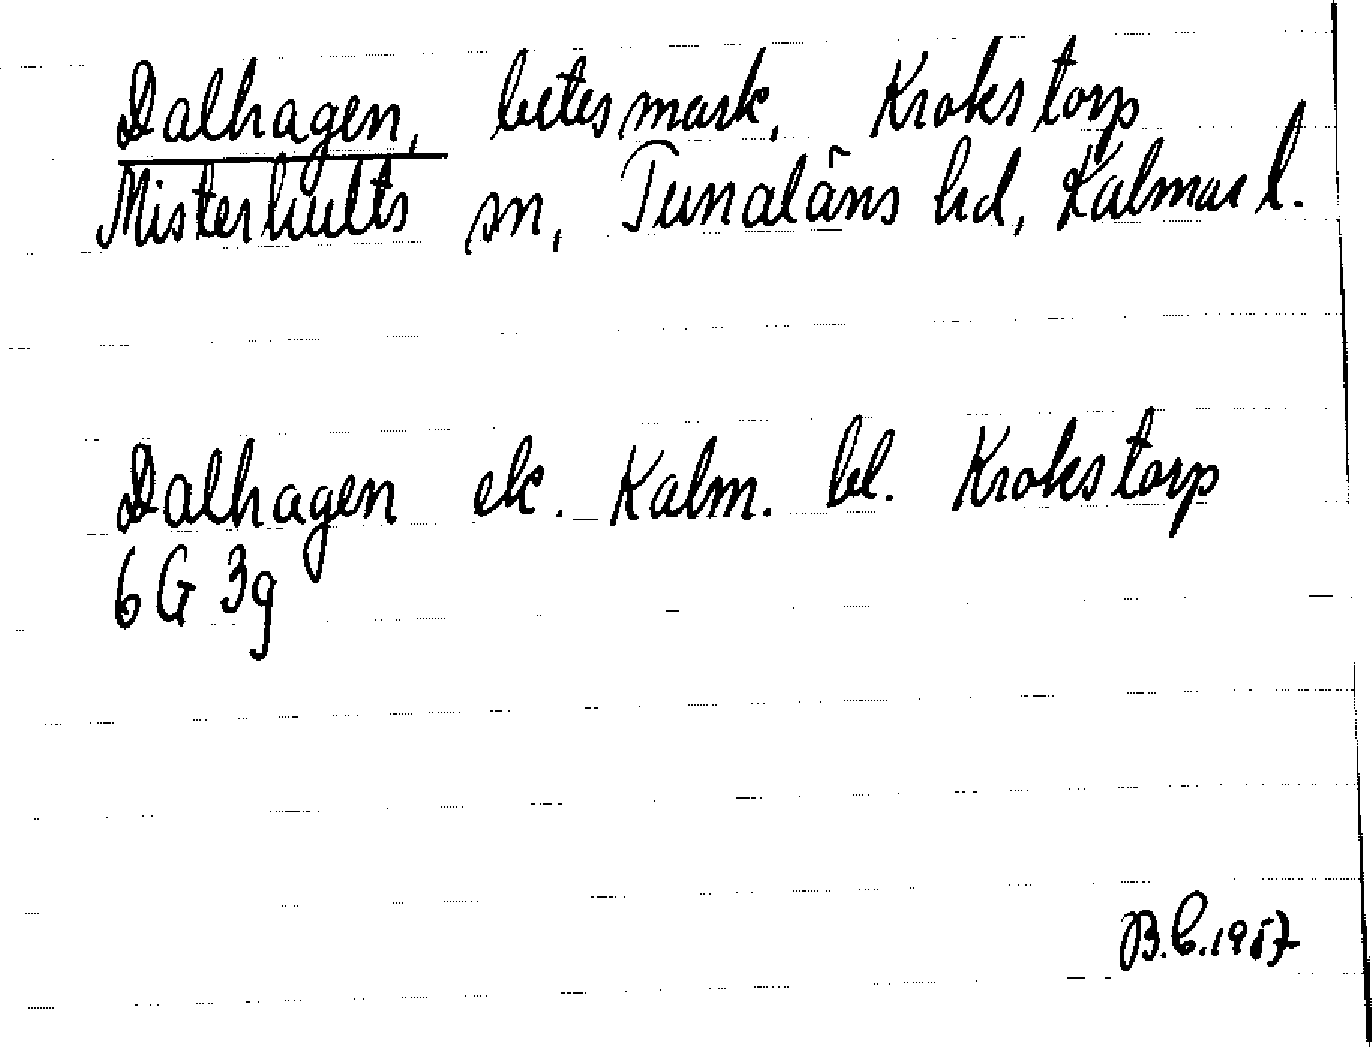 Dalhagen, betesmark, Krokstorp
Misterhults sn, Tunaläns hd, Kalmar l.
Dalhagen ek. Kalm. bl. Krokstorp
6G 3g
B.C. 1957